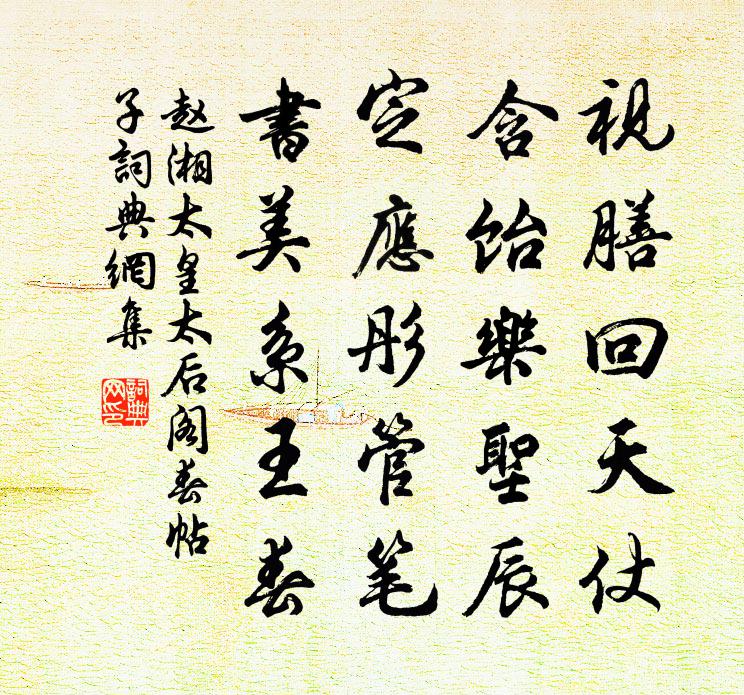 視膳回天仗
含飴樂聖辰
定應彤管笔
書美系王春
赵湘太皇太后阁春帖
子詞典網集
詞典
网印